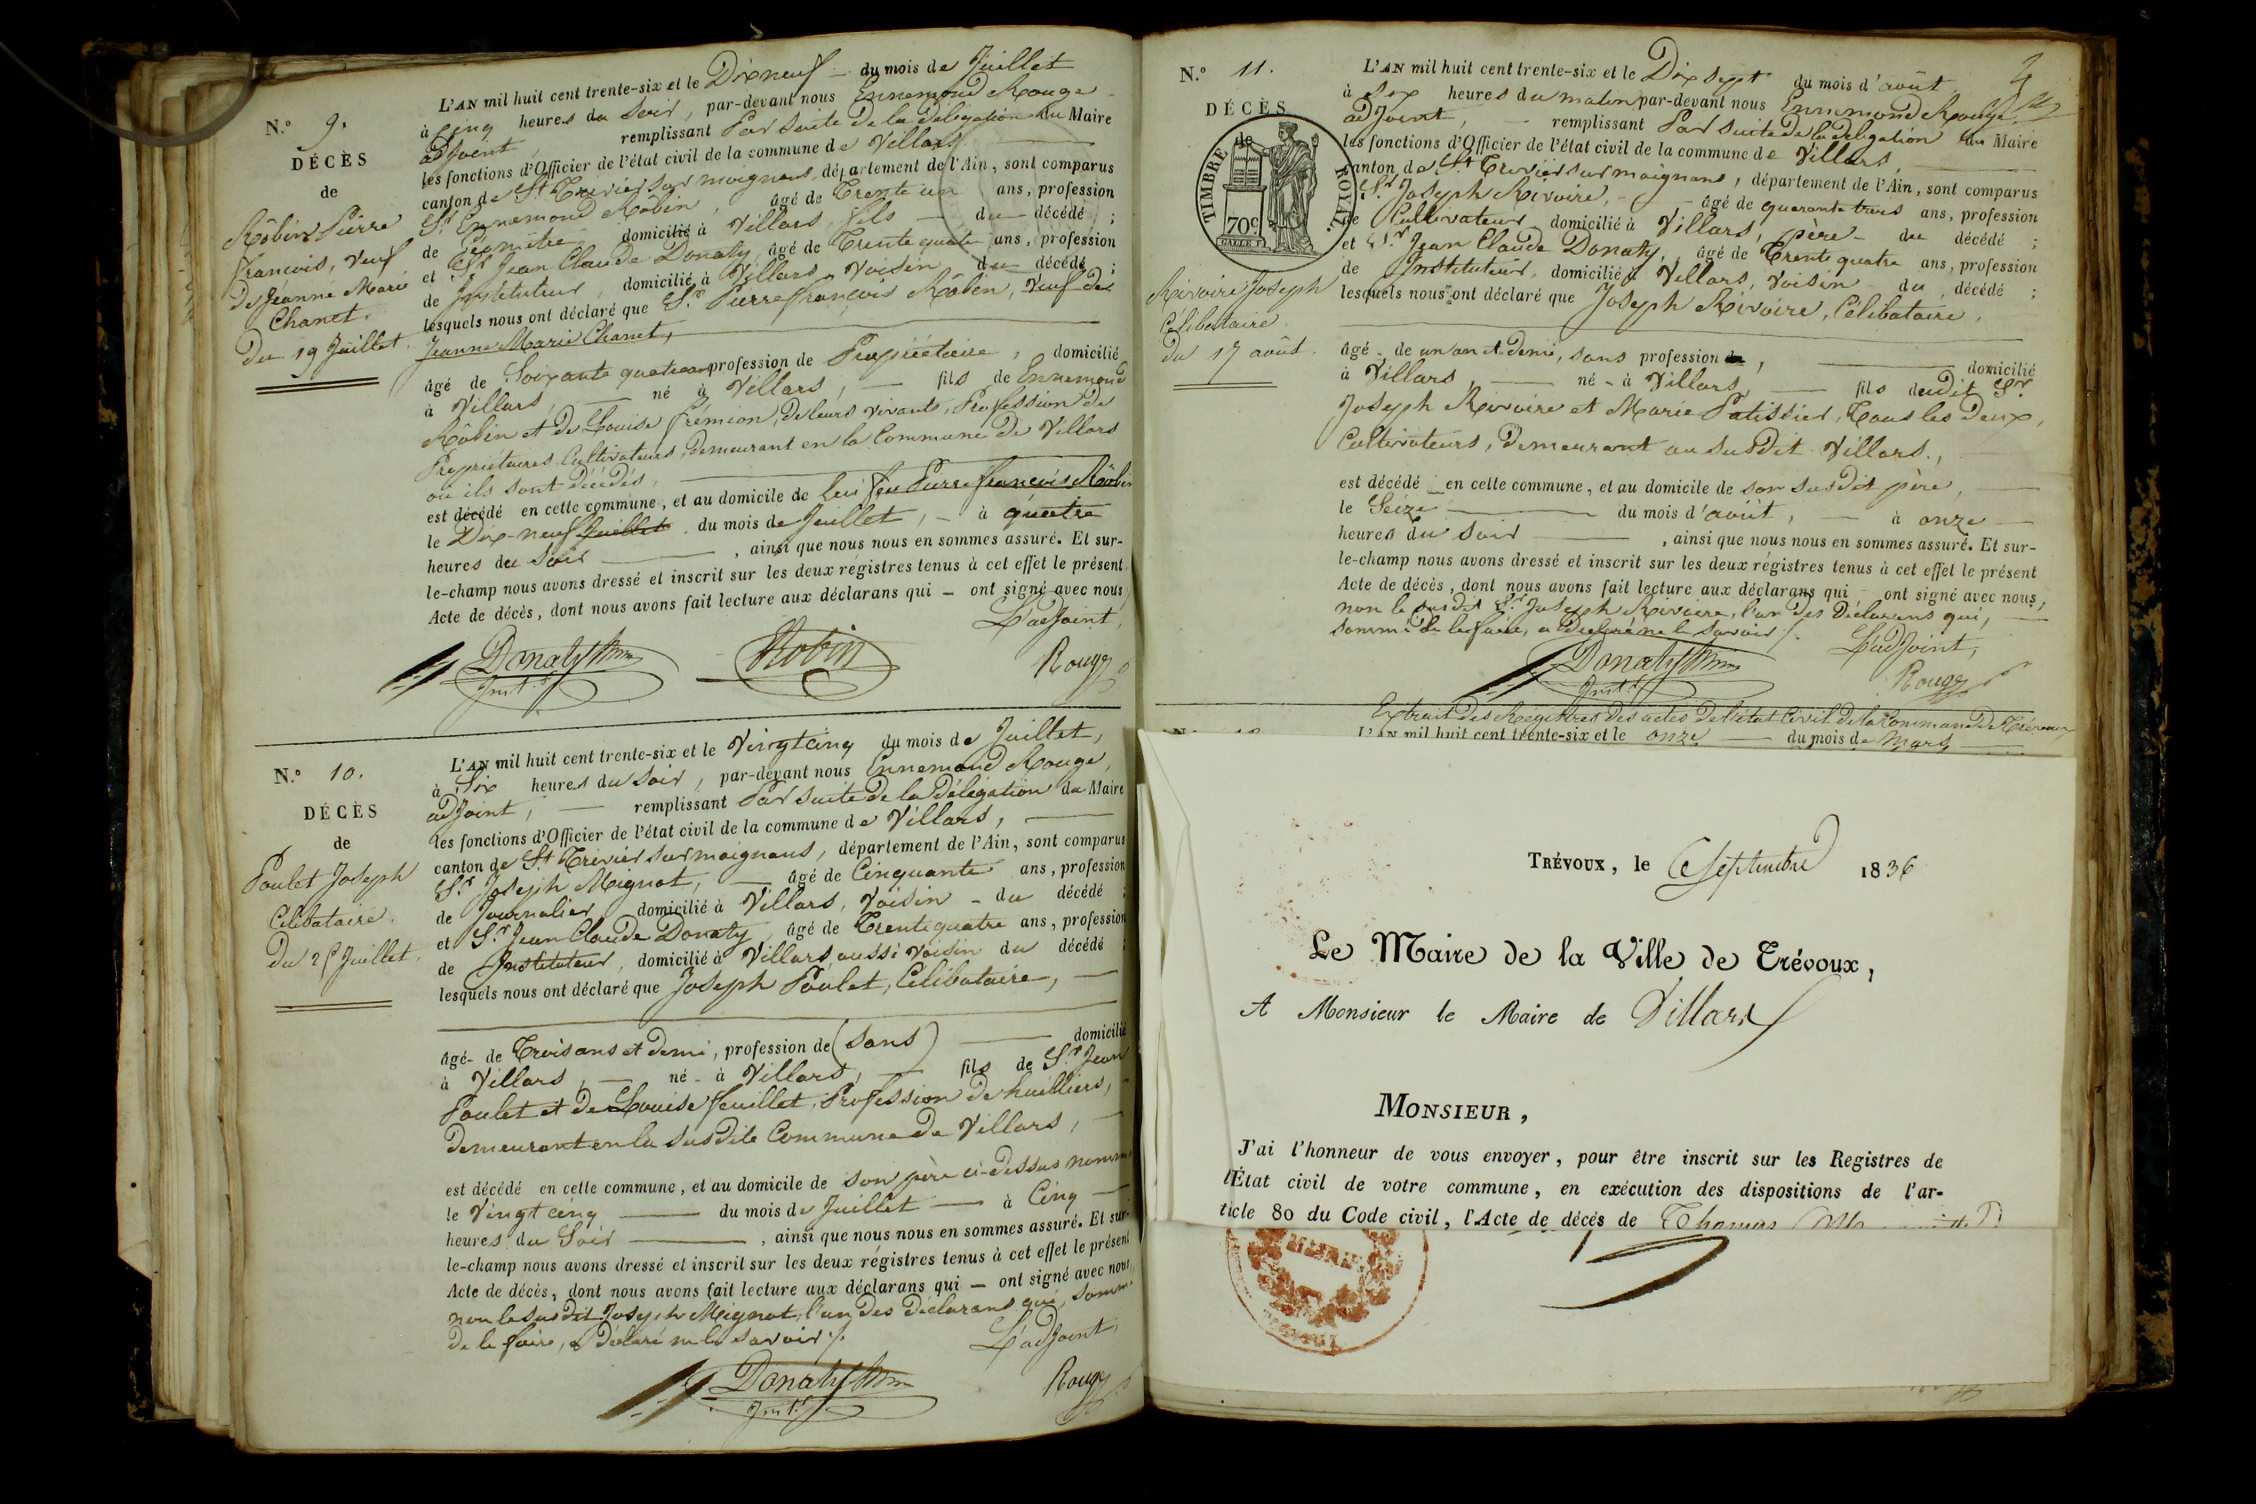 N.° 9.
DÉCÈS
de
Rôbin Pierre
francois, veuf
De Jeanne Marie
Chanet.
Du 19 Juillet.
L'AN mil huit cent trente-six et le Dix neuf du mois de Juillet
à Cinq heures du Soir, par-devant nous Ennemond Rouge
adJoint, remplissant Par suite de la délégation du Maire
les fonctions d'Officier de l'état civil de la commune de Villars
canton de St. Trevier sur moignans, département de l'Ain, sont comparus
Sr. Ennemond Rôbin, âgé de Trente un ans, profession
de Géomètre domicilié à Villars, fils du décédé ;
et Sr. Jean Claude Donaty, âgé de Trente quatre ans, profession
de Instituteur, domicilié à Villars, Voisin du décédé ;
lesquels nous ont déclaré que Sr. Pierre françois Rôbin, Veuf de
Jeanne Marie Chanet,
âgé de Soixante quatre ans profession de Propriétaire, domicilié
à Villars, né à Villars, fils de Ennemond
Rôbin et de Louise frémion, de leurs vivants, Profession de
Propriétaires Cultivateurs, Demeurant en la Commune de Villars
où ils sont décédés,
est décédé en cette commune, et au domicile de lui feu Pierre francois Rôbin
le Dix-neuf Juillet du mois de Juillet, à quatre
heures du Soir, ainsi que nous nous en sommes assuré. Et sur-
le-champ nous avons dressé et inscrit sur les deux régistres tenus à cet effet le présent
Acte de décès, dont nous avons fait lecture aux déclarans qui – ont signé avec nous,
L'adJoint,
Donaty
Instr.
Robin
Rouge
N.° 10.
DÉCÈS
de
Poulet Joseph
Célibataire.
Du 25 Juillet.
L'AN mil huit cent trente-six et le Vingt cinq du mois de Juillet,
à Six heures du Soir, par-devant nous Ennemond Rouge,
adJoint, remplissant Par suite de la délégation du Maire
les fonctions d'Officier de l'état civil de la commune de Villars,
canton de St. Trevier sur moignans, département de l'Ain, sont comparus
Sr. Joseph Mignot, âgé de Cinquante ans, profession
de Journalier domicilié à Villars, Voisin du décédé ;
et Sr. Jean Claude Donaty, âgé de Trente quatre ans, profession
de Instituteur, domicilié à Villars aussi Voisin du décédé ;
lesquels nous ont déclaré que Joseph Poulet, Célibataire,
âgé de Trois ans et demi, profession de (sans) domicilié
à Villars, né à Villars, fils de Sr. Jean
Poulet et de Louise feuillet, Profession de huilliers,
Demeurant en la susdite Commune de Villars,
est décédé en cette commune, et au domicile de son père ci-dessus nommé
le Vingt cinq du mois de Juillet à Cinq
heures du Soir, ainsi que nous nous en sommes assuré. Et sur-
le-champ nous avons dressé et inscrit sur les deux régistres tenus à cet effet le présent
Acte de décès, dont nous avons fait lecture aux déclarans qui – ont signé avec nous,
non le susdit Joseph Mignot, l'un des Déclarans qui, sommé
De le faire, a Déclaré ne le savoir./.
L'adJoint,
Donaty
Instr.
Rouge
N.° 11.
DÉCÈS
de
TIMBRE ROYAL.
70c
Rivoire Joseph
Célibataire.
Du 17 août.
L'AN mil huit cent trente-six et le Dix sept du mois d'août
à six heures du matin par-devant nous Ennemond Rouge,
adJoint, remplissant Par suite de la délégation du Maire
les fonctions d'Officier de l'état civil de la commune de Villars,
canton de St. Trevier sur moignans, département de l'Ain, sont comparus
Sr. Joseph Rivoire, âgé de quarante trois ans, profession
de Cultivateur domicilié à Villars, père du décédé ;
et Sr. Jean Claude Donaty, âgé de Trente quatre ans, profession
de Instituteur, domicilié à Villars, Voisin du décédé ;
lesquels nous ont déclaré que Joseph Rivoire, Célibataire,
âgé de un an et demi, sans profession de, domicilié
à Villars, né à Villars, fils dudit Sr.
Joseph Rivoire et Marie Patissier, Tous les deux,
Cultivateurs, Demeurant au susdit Villars,
est décédé en cette commune, et au domicile de son susdit père,
le Seize du mois d'août, à onze
heures du Soir, ainsi que nous nous en sommes assuré. Et sur-
le-champ nous avons dressé et inscrit sur les deux régistres tenus à cet effet le présent
Acte de décès, dont nous avons fait lecture aux déclarans qui ont signé avec nous,
non le susdit Sr. Joseph Rivoire, l'un des Déclarans qui,
sommé De le faire, a Déclaré ne le savoir./.
L'adJoint,
Donaty
Instr.
Rouge
Extrait des Régistres des actes de l'état Civil de la Commune de Trévoux
L'AN mil huit cent trente-six et le onze du mois de Mars
TRÉVOUX, le Septembre 1836
Le Maire de la Ville de Trévoux,
A Monsieur le Maire de Villars
MONSIEUR,
J'ai l'honneur de vous envoyer, pour être inscrit sur les Registres de
l'État civil de votre commune, en exécution des dispositions de l'ar-
ticle 80 du Code civil, l'Acte de décès de Thomas